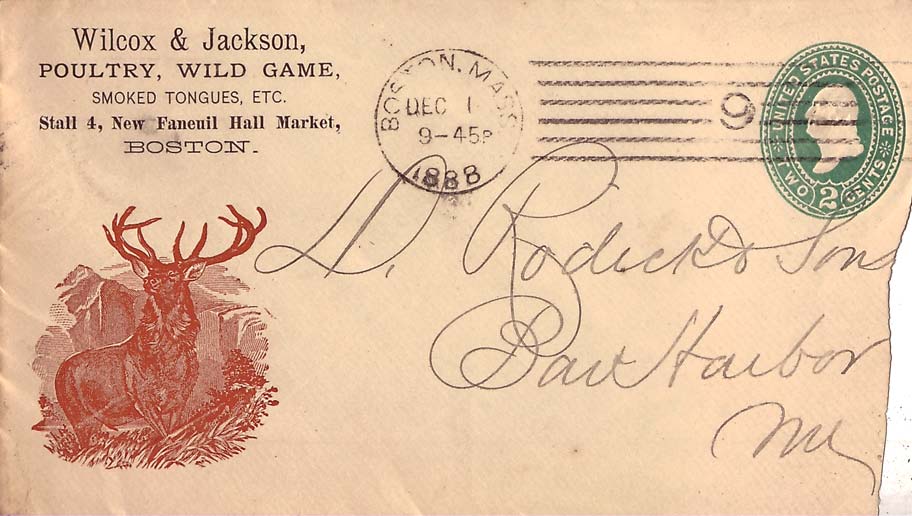 Wilcox & Jackson,
POULTRY, WILD GAME,
SMOKED TONGUES, ETC.
Stall 4, New Faneuil Hall Market,
BOSTON.
BOSTON, MASS
DEC 1
9-45P
1888
9
UNITED STATES POSTAGE
TWO 2 CENTS
D. Rodick & Sons
Bar Harbor
Me